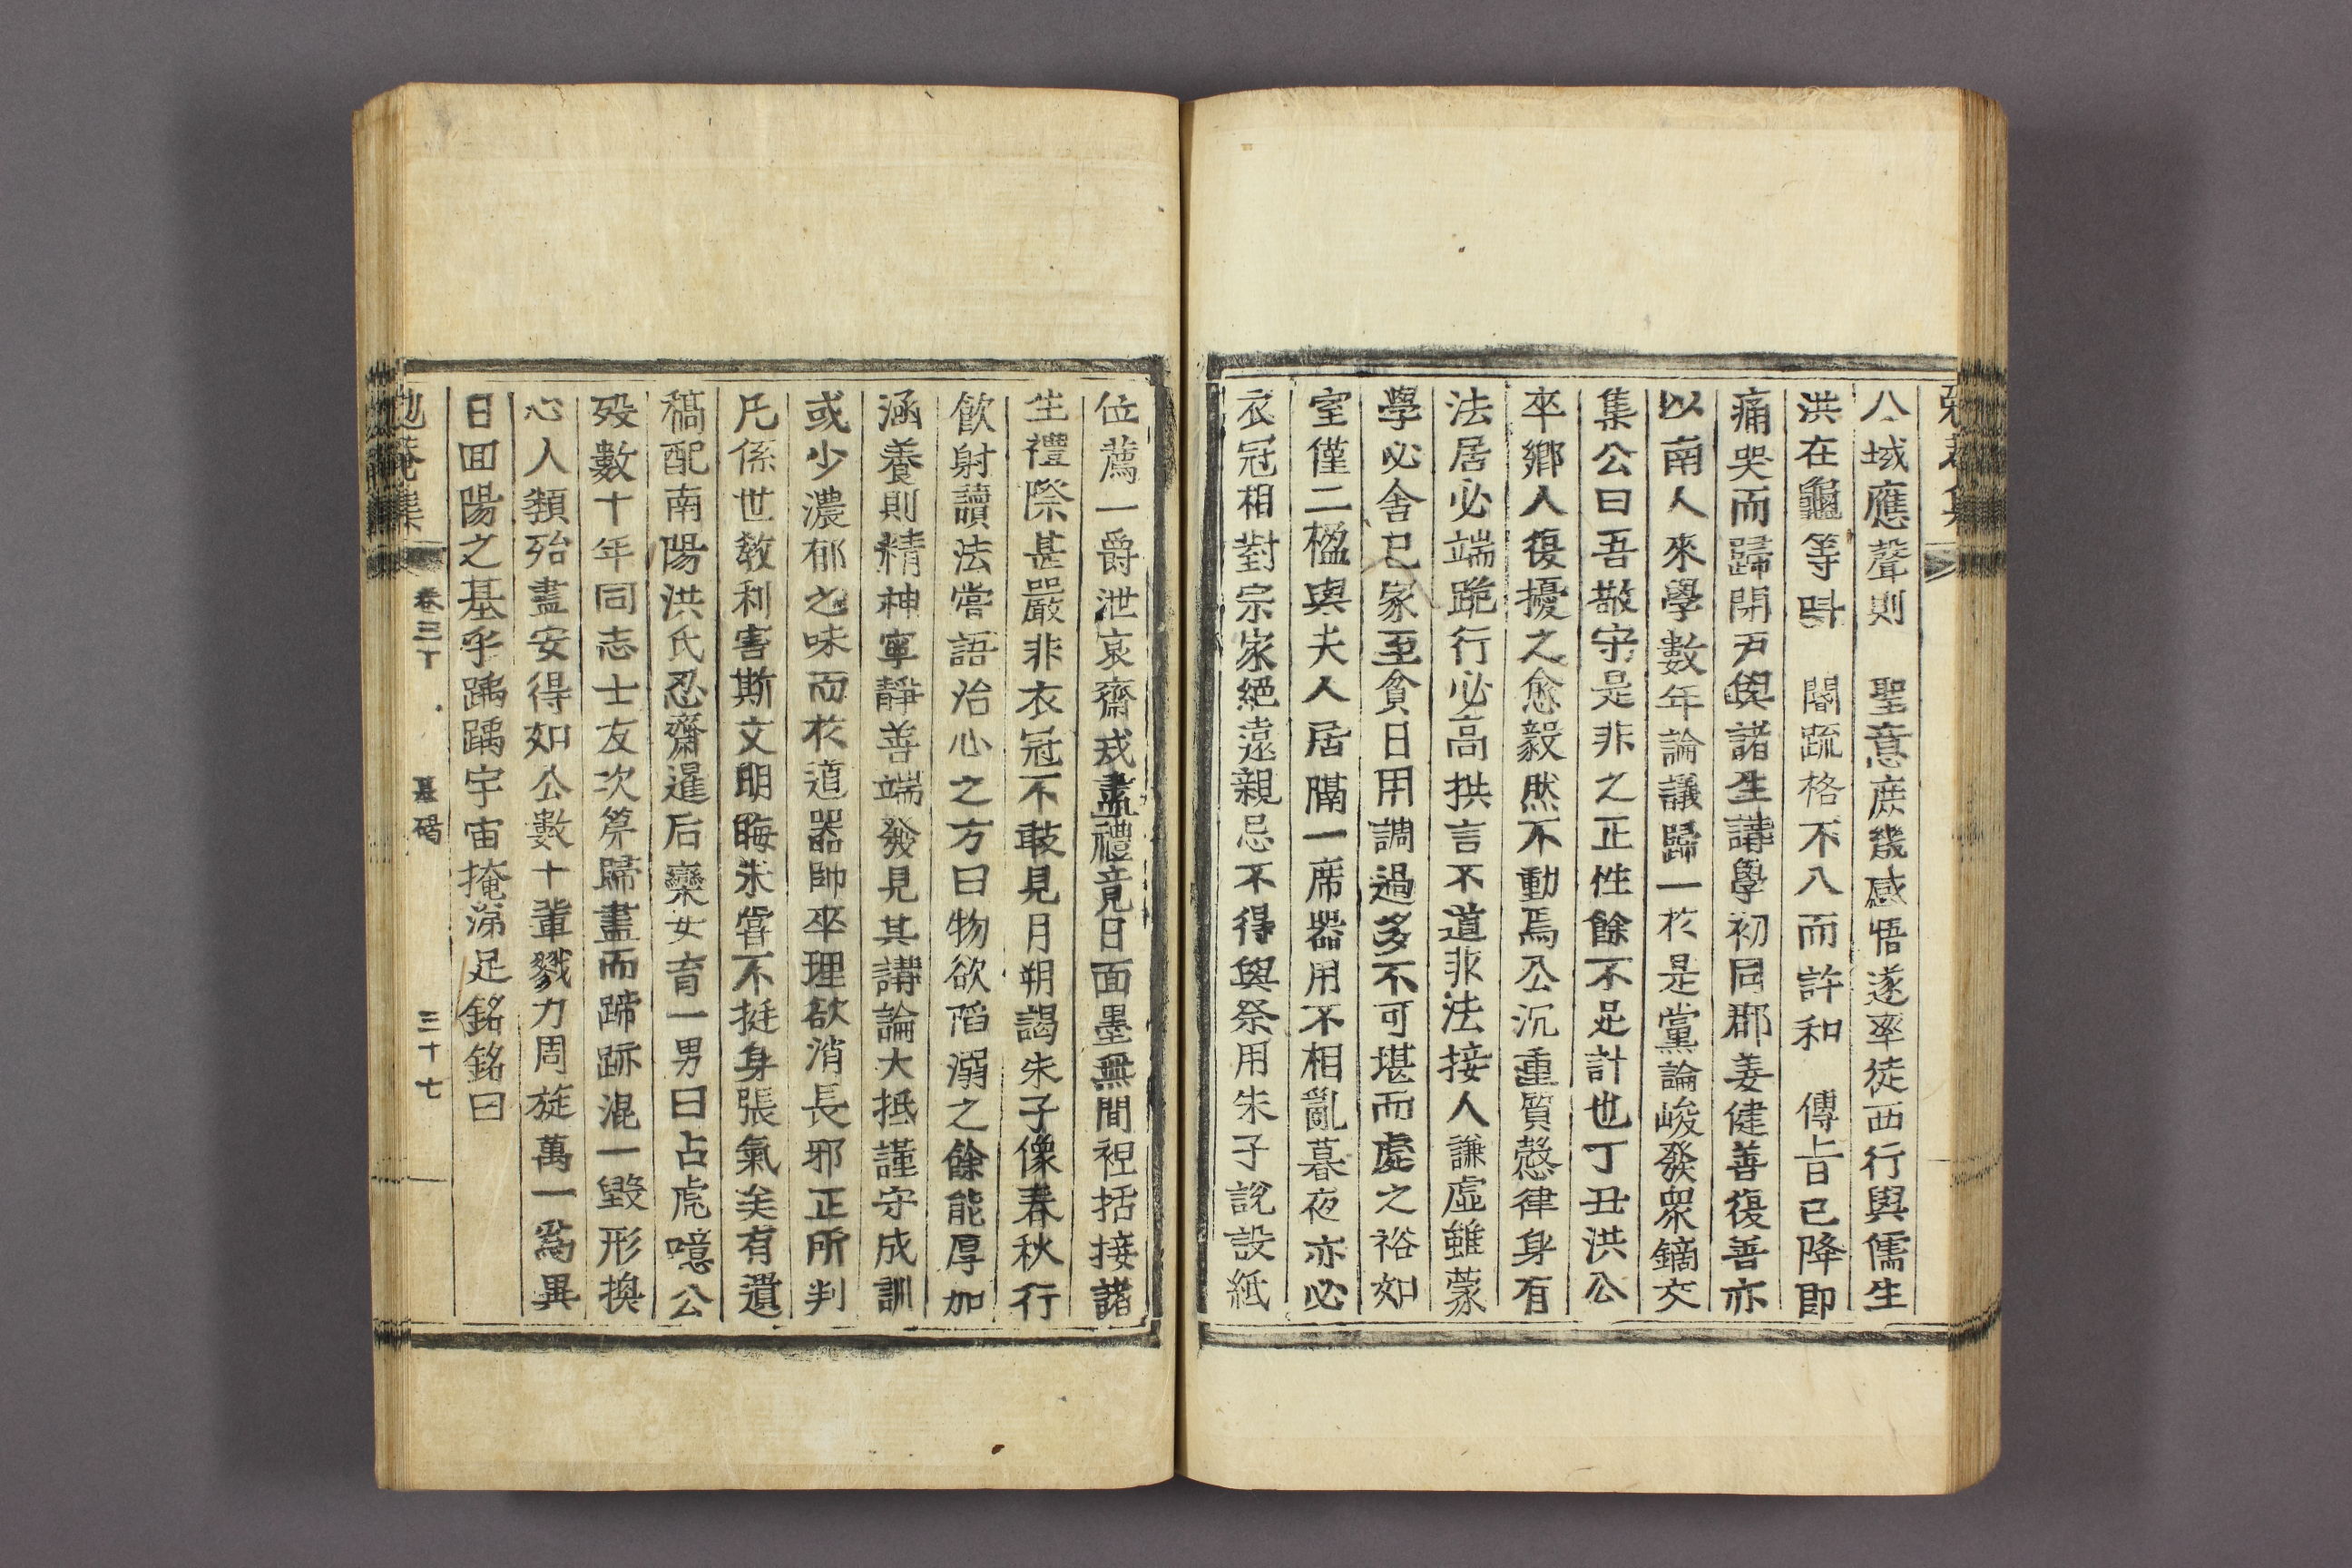 八域應聲則 聖意庶幾感悟遂率徒西行與儒生
洪在龜等叫 閽疏格不入而許和 傳旨已降即
痛哭而歸開尹與諸生講學初同郡姜健善復善亦
以南人來學數年論議歸一於是黨論峻發衆鏑交
集公曰吾敬守是非之正性餘不足計也丁丑洪公
卒鄉人復擾之愈毅然不動焉公沉重質慤律身有
法居必端跪行必高拱言不道非法接人謙虛雖蒙
學必舍已家至貧日用調過多不可堪而處之裕如
室僅二楹與夫人居隔一席器用不相亂暮夜亦必
衣冠相對宗家絕遠親忌不得與祭用朱子說設紙
位薦一爵泄哀齋戒盡禮竟日面墨無間袒括接諸
生禮際甚嚴非衣冠不敢見月朔謁朱子像春秋行
飮射讀法嘗語治心之方曰物欲陷溺之餘能厚加
涵養則精神寧靜善端發見其講論大抵謹守成訓
或少濃郁之味而於道器帥卒理欲消長邪正所判
凡係世敎利害斯文明晦未嘗不挺身張氣矣有遺
稿配南陽洪氏忍齋暹后欒女育一男曰占虎噫公
歿數十年同志士友次第歸盡而蹄跡混一毀形換
心人類殆盡安得如公數十輩戮力周旋萬一爲異
日回陽之基乎踽踽宇宙掩涕足銘銘曰
卷三丁 墓碣 三十七